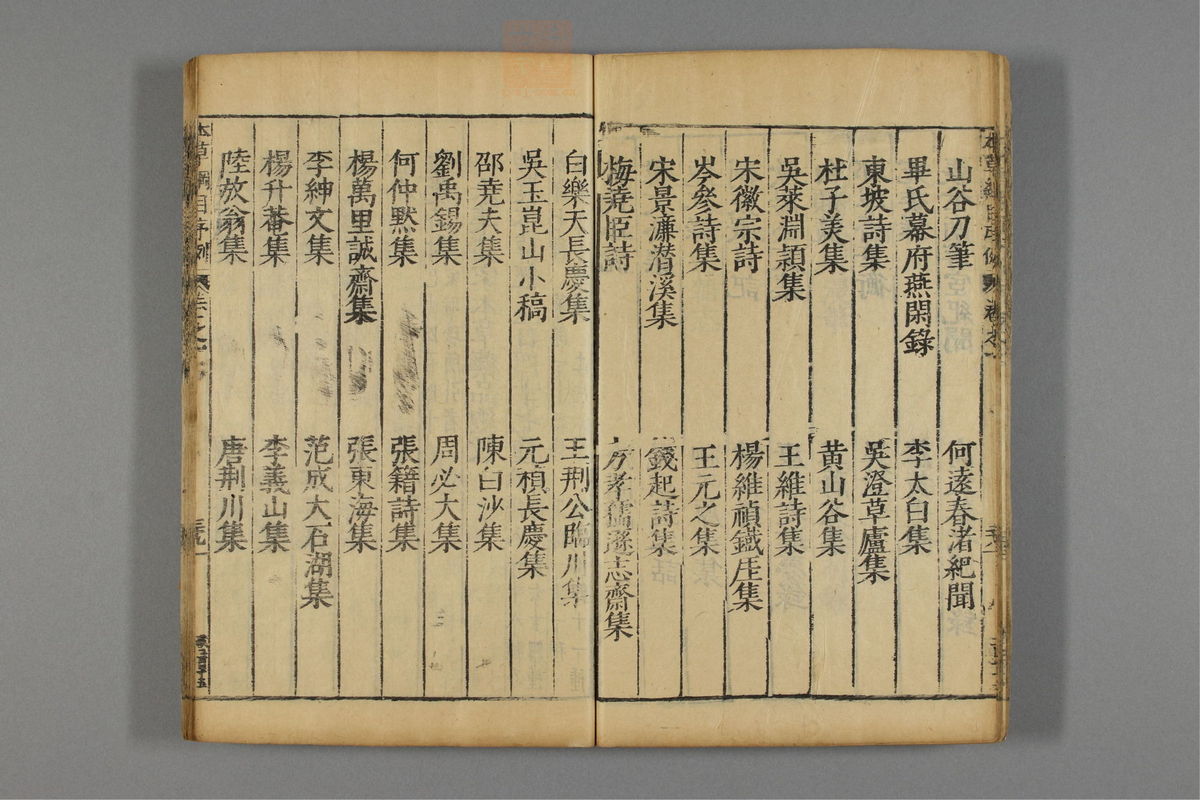 山谷刀筆　何薳春渚紀聞
畢氏幕府燕閑錄　李太白集
東坡詩集　吳澄草廬集
杜子美集　黃山谷集
吳萊淵穎集　王維詩集
宋徽宗詩　楊維禎鐵厓集
岑參詩集　王元之集
宋景濂潛溪集　錢起詩集
梅堯臣詩　方孝孺遜志齋集
白樂天長慶集　王荆公臨川集
吳玉崑山小稿　元稹長慶集
邵堯夫集　陳白沙集
劉禹錫集　周必大集
何仲默集　張籍詩集
楊萬里誠齋集　張東海集
李紳文集　范成大石湖集
楊升菴集　李義山集
陸放翁集　唐荆川集
本草綱目序例